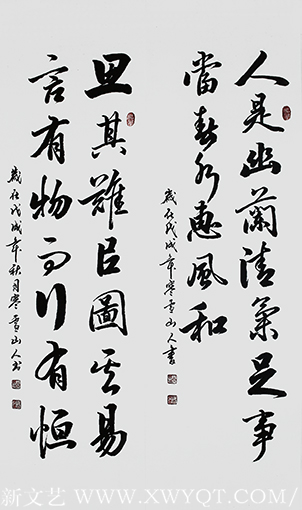 人是幽蘭清氣足事
當春水惠風和
歲在戊戌年寒雪山人書
思其難㠯圖其易
言有物而行有恒
歲在戊戌年秋月寒雪山人书
新文艺 WWW.XWYQT.COM